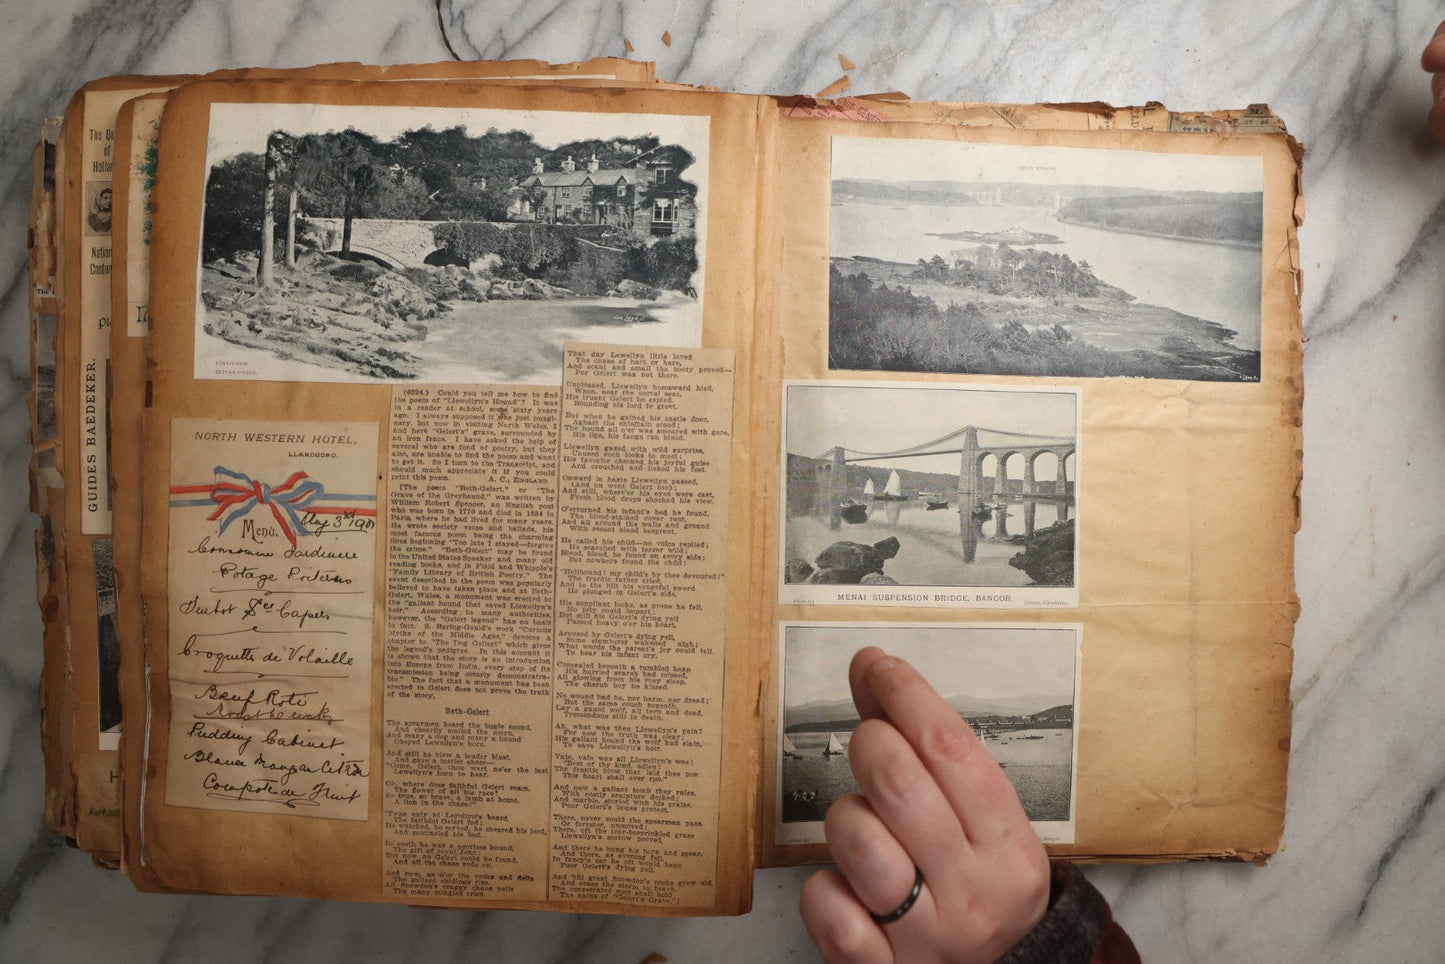 The Qu
of
Holla
Nation
Costum
GUIDES BAEDEKER.
PONT-Y-PAIR
BETTWS-Y-COED.
NORTH WESTERN HOTEL,
LLANDUDNO.
Menu.
Aug 3rd 1901
Consommé Jardiniere
Potage Poitevin
Turbot Sce Capers
Croquette de Volaille
Bœuf Roti
Pudding Cabinet
Blanc Mangar Citron
Compôte de Fruit
(6524.) Could you tell me how to find
the poem of "Llewellyn's Hound"? It was
in a reader at school, some sixty years
ago. I always supposed it was just imagi-
nary, but now in visiting North Wales, I
find here "Gelert's" grave, surrounded by
an iron fence. I have asked the help of
several who are fond of poetry, but they
also, are unable to find the poem and want
to get it. So I turn to the Transcript, and
should much appreciate it if you could
print this poem. A. C., ENGLAND
[The poem "Beth-Gelert," or "The
Grave of the Greyhound," was written by
William Robert Spencer, an English poet
who was born in 1770 and died in 1834 in
Paris, where he had lived for many years.
He wrote society verse and ballads, his
most famous poem being the charming
lines beginning "Too late I stayed—forgive
the crime." "Beth-Gelert" may be found
in the United States Speaker and many old
reading books, and in Field and Whipple's
"Family Library of British Poetry." The
event described in the poem was popularly
believed to have taken place and at Beth-
Gelert, Wales, a monument was erected to
the "gallant hound that saved Llewellyn's
heir." According to many authorities,
however, the "Gelert legend" has no basis
in fact. S. Baring-Gould's work "Curious
Myths of the Middle Ages," devotes a
chapter to "The Dog Gellert" which gives
the legend's pedigree. In this account it
is shown that the story is an introduction
into Europe from India, every step of its
transmission being clearly demonstrata-
ble." The fact that a monument has been
erected to Gelert does not prove the truth
of the story.
Beth-Gelert
The spearmen heard the bugle sound,
And cheerily smiled the morn,
And many a dog and many a hound
Obeyed Lewellyn's horn.
And still he blew a louder blast,
And gave a lustier cheer—
"Come, Gelert, thou wert ne'er the last
Lewellyn's horn to hear.
Oh, where does faithful Gelert roam,
The flower of all his race?
So true, so brave, a lamb at home,
A lion in the chase!"
'Twas only at Lewellyn's board
The faithful Gelert fed;
He watched, he served, he cheered his lord,
And sentinelled his bed.
In sooth he was a peerless hound,
The gift of royal John;
But now no Gelert could be found,
And all the chase rode on.
And now, as o'er the rocks and dells
The gallant chidings rise,
All Snowdon's craggy chaos yells
The many mingled cries.
That day Lewellyn little loved
The chase of hart or hare,
And scant and small the booty proved—
For Gelert was not there.
Unpleased, Llewellyn homeward hied,
When, near the portal seat,
His truant Gelert he espied,
Bounding his lord to greet.
But when he gained his castle door,
Aghast the chieftain stood;
The hound all o'er was smeared with gore,
His lips, his fangs ran blood.
Llewellyn gazed with wild surprise,
Unused such looks to meet;
His favorite checked his joyful guise
And crouched and licked his feet.
Onward in haste Llewellyn passed,
(And on went Gelert too);
And still, where'er his eyes were cast,
Fresh blood drops shocked his view.
O'erturned his infant's bed he found,
The blood-stained cover rent,
And all around the walls and ground
With recent blood besprent.
He called his child—no voice replied;
He searched with terror wild;
Blood, blood, he found on every side;
But nowhere found the child!
"Hellhound! my child's by thee devoured!"
The frantic father cried,
And to the hilt his vengeful sword
He plunged in Gelert's side.
His suppliant looks, as prone he fell,
No pity could impart;
But still his Gelert's dying yell
Passed heavy o'er his heart.
Aroused by Gelert's dying yell,
Some slumberer wakened nigh;
What words the parent's joy could tell,
To hear his infant cry.
Concealed beneath a tumbled heap
His hurried search had missed,
All glowing from his rosy sleep,
The cherub boy he kissed.
No wound had he, nor harm, nor dread;
But the same couch beneath,
Lay a gaunt wolf, all torn and dead,
Tremendous still in death.
Ah, what was then Llewellyn's pain?
For now the truth was clear;
His gallant hound the wolf had slain,
To save Llewellyn's heir.
Vain, vain was all Llewellyn's woe:
"Best of thy kind, adieu!
The frantic blow that laid thee low
This heart shall ever rue."
And now a gallant tomb they raise,
With costly sculpture decked;
And marble, storied with his praise,
Poor Gelert's bones protect.
There, never could the spearman pass,
Or forester, unmoved;
There, oft the tear-besprinkled grass
Llewellyn's sorrow proved.
And there he hung his horn and spear,
And there, as evening fell,
In fancy's ear he oft would hear
Poor Gelert's dying yell.
And 'till great Snowdon's rocks grow old,
And cease the storm to brave,
The consecrated spot shall hold
The name of "Gelert's Grave."]
MENAI STRAITS.
MENAI SUSPENSION BRIDGE, BANGOR.
Bangor.